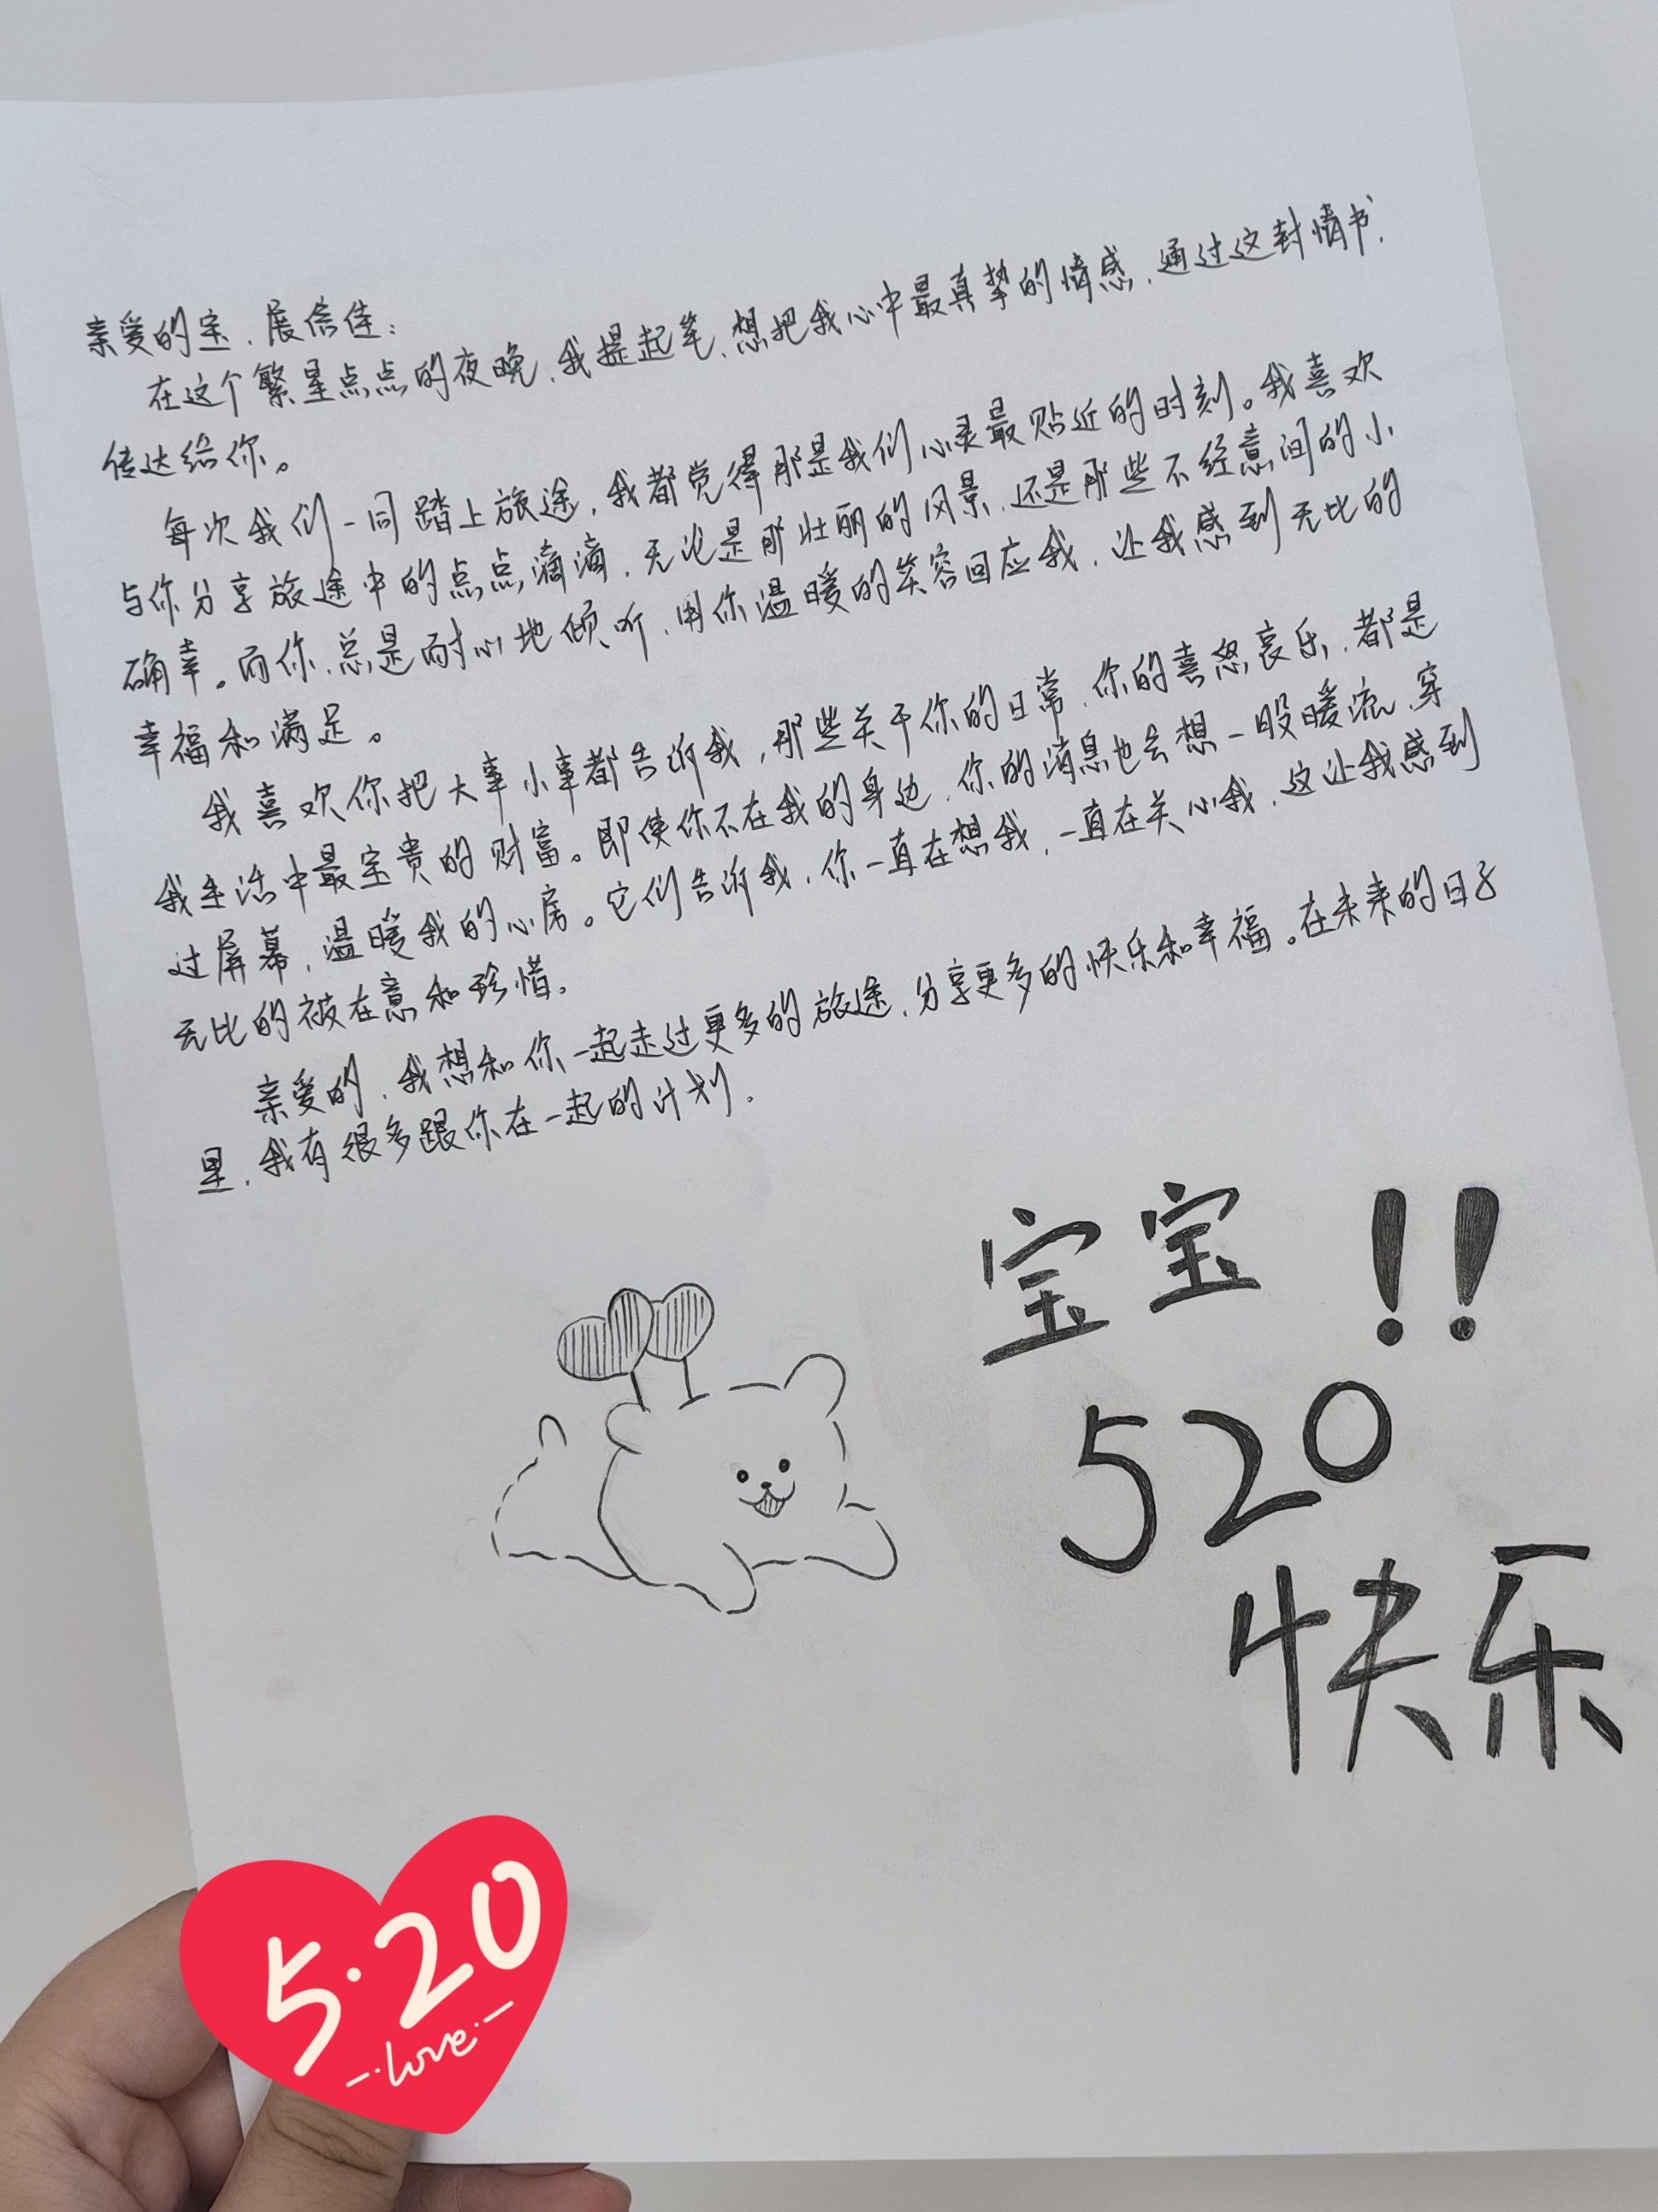 亲爱的宝,展信佳:
在这个繁星点点的夜晚,我提起笔,想把我心中最真挚的情感,通过这封情书,
传达给你。
每次我们一同踏上旅途,我都觉得那是我们心灵最贴近的时刻。我喜欢
与你分享旅途中的点点滴滴,无论是那壮丽的风景,还是那些不经意间的小
确幸。而你,总是耐心地倾听,用你温暖的笑容回应我,让我感到无比的
幸福和满足。
我喜欢你把大事小事都告诉我,那些关于你的日常,你的喜怒哀乐,都是
我生活中最宝贵的财富。即使你不在我的身边,你的消息也会想一股暖流,穿
过屏幕,温暖我的心房。它们告诉我,你一直在想我,一直在关心我,这让我感到
无比的被在意和珍惜。
亲爱的,我想和你一起走过更多的旅途,分享更多的快乐和幸福。在未来的日子
里,我有很多跟你在一起的计划.
宝宝!!
520
快乐
5·20
love